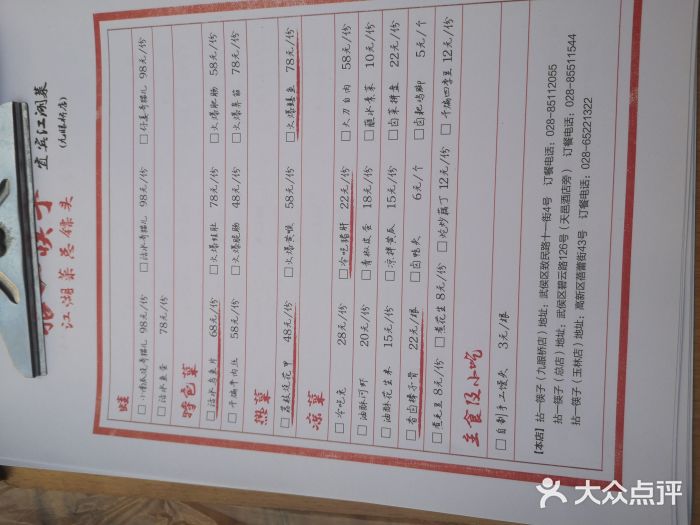 筷子
江湖菜总镖头
宜宾江湖菜
(九眼桥店)
蛙
98元/份 98元/份 □ 仔姜 98元/份
78元/份
特色菜
乌鱼片 68元/份 □ 火爆 78元/份 □ 火爆肥肠 58元/份
□ 干煸牛肉丝 58元/份 □ 火爆脆肠 48元/份 □ 火爆鼻筋 78元/份
热菜
□ 荔枝烧花甲 48元/份 □ 火爆黄喉 58元/份 □ 火爆鳝鱼 78元/份
凉菜
□ 冷吃兔 28元/份 □ 冷吃猪肝 22元/份 □ 大刀白肉 58元/份
□ 油酥闷虾 20元/份 □ 青椒皮蛋 18元/份 □ 蘸水素菜 10元/份
□ 油酥花生米 15元/份 □ 凉拌黄瓜 15元/份 □ 卤菜拼盘 22元/份
□ 香卤棒子骨 22元/根 □ 卤鸭头 6元/个 □ 卤耙鸡脚 5元/个
□ 煮毛豆 8元/份 □ 煮花生 8元/份 □ 炝炒藕丁 12元/份 □ 干煸四季豆 12元/份
主食及小吃
□ 自制手工馒头 3元/根
【本店】拈一筷子（九眼桥店）地址：武侯区致民路十一街4号 订餐电话：028-85112055
拈一筷子（总店）地址：武侯区碧云路126号（天邑酒店旁） 订餐电话：028-85511544
拈一筷子（玉林店）地址：高新区蓓蕾街43号 订餐电话：028-65221322
大众点评